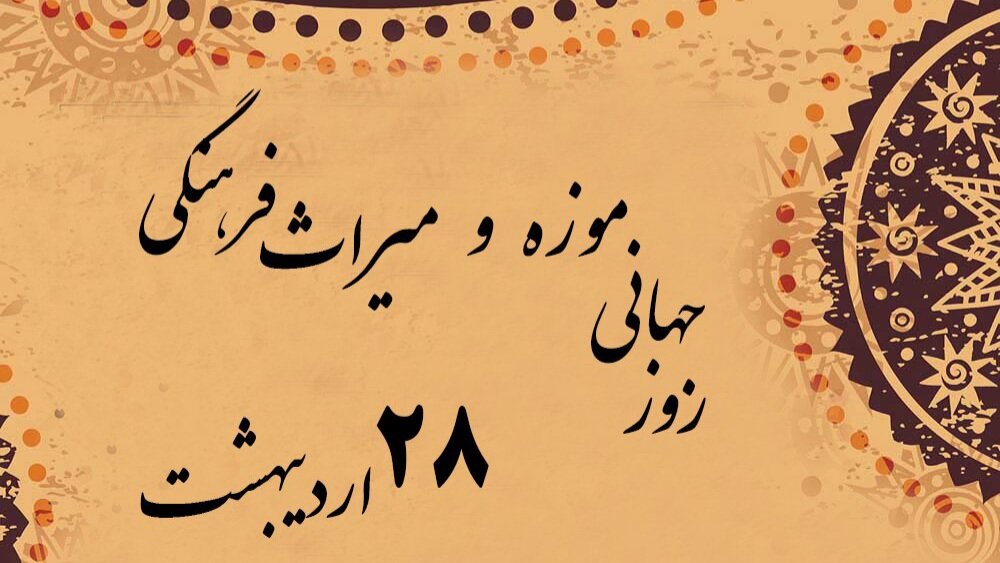 روز
جهانی
موزه و میراث فرهنگی
۲۸ اردیبهشت